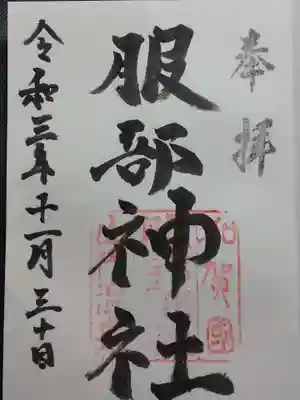 奉拝
服部神社
令和三年十一月三十日